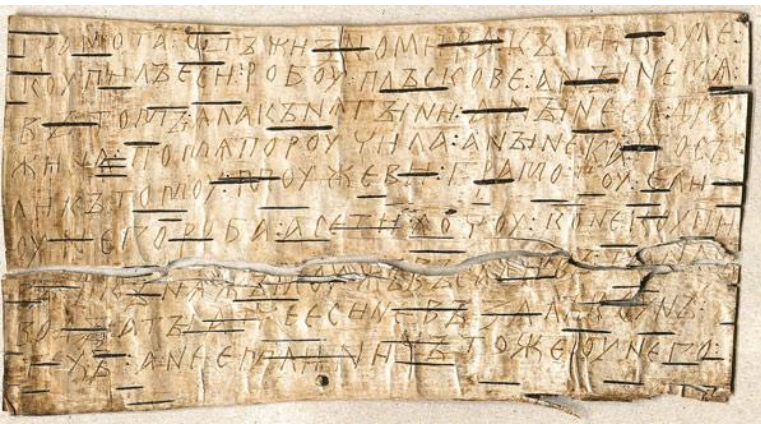 грамота : ѡтъ жизномира : къ микоуле :
коупилъ еси : робоу : плъскове : а нъıне мѧ :
въ томъ : ѧла кънѧгъıни : а нъıне сѧ дроу
жина : по мѧ пороучила : а нъıне ка : посъ
ли къ томоу : моужеви : грамотоу : ели
оу него роба : а се ти хочоу : коне коупи
въ : и кънѧжъ моужъ въсадивъ : та на съ
водъı : а тъı атче еси не възалъ коунъ :
техъ : а не емли : ничъто же оу него :